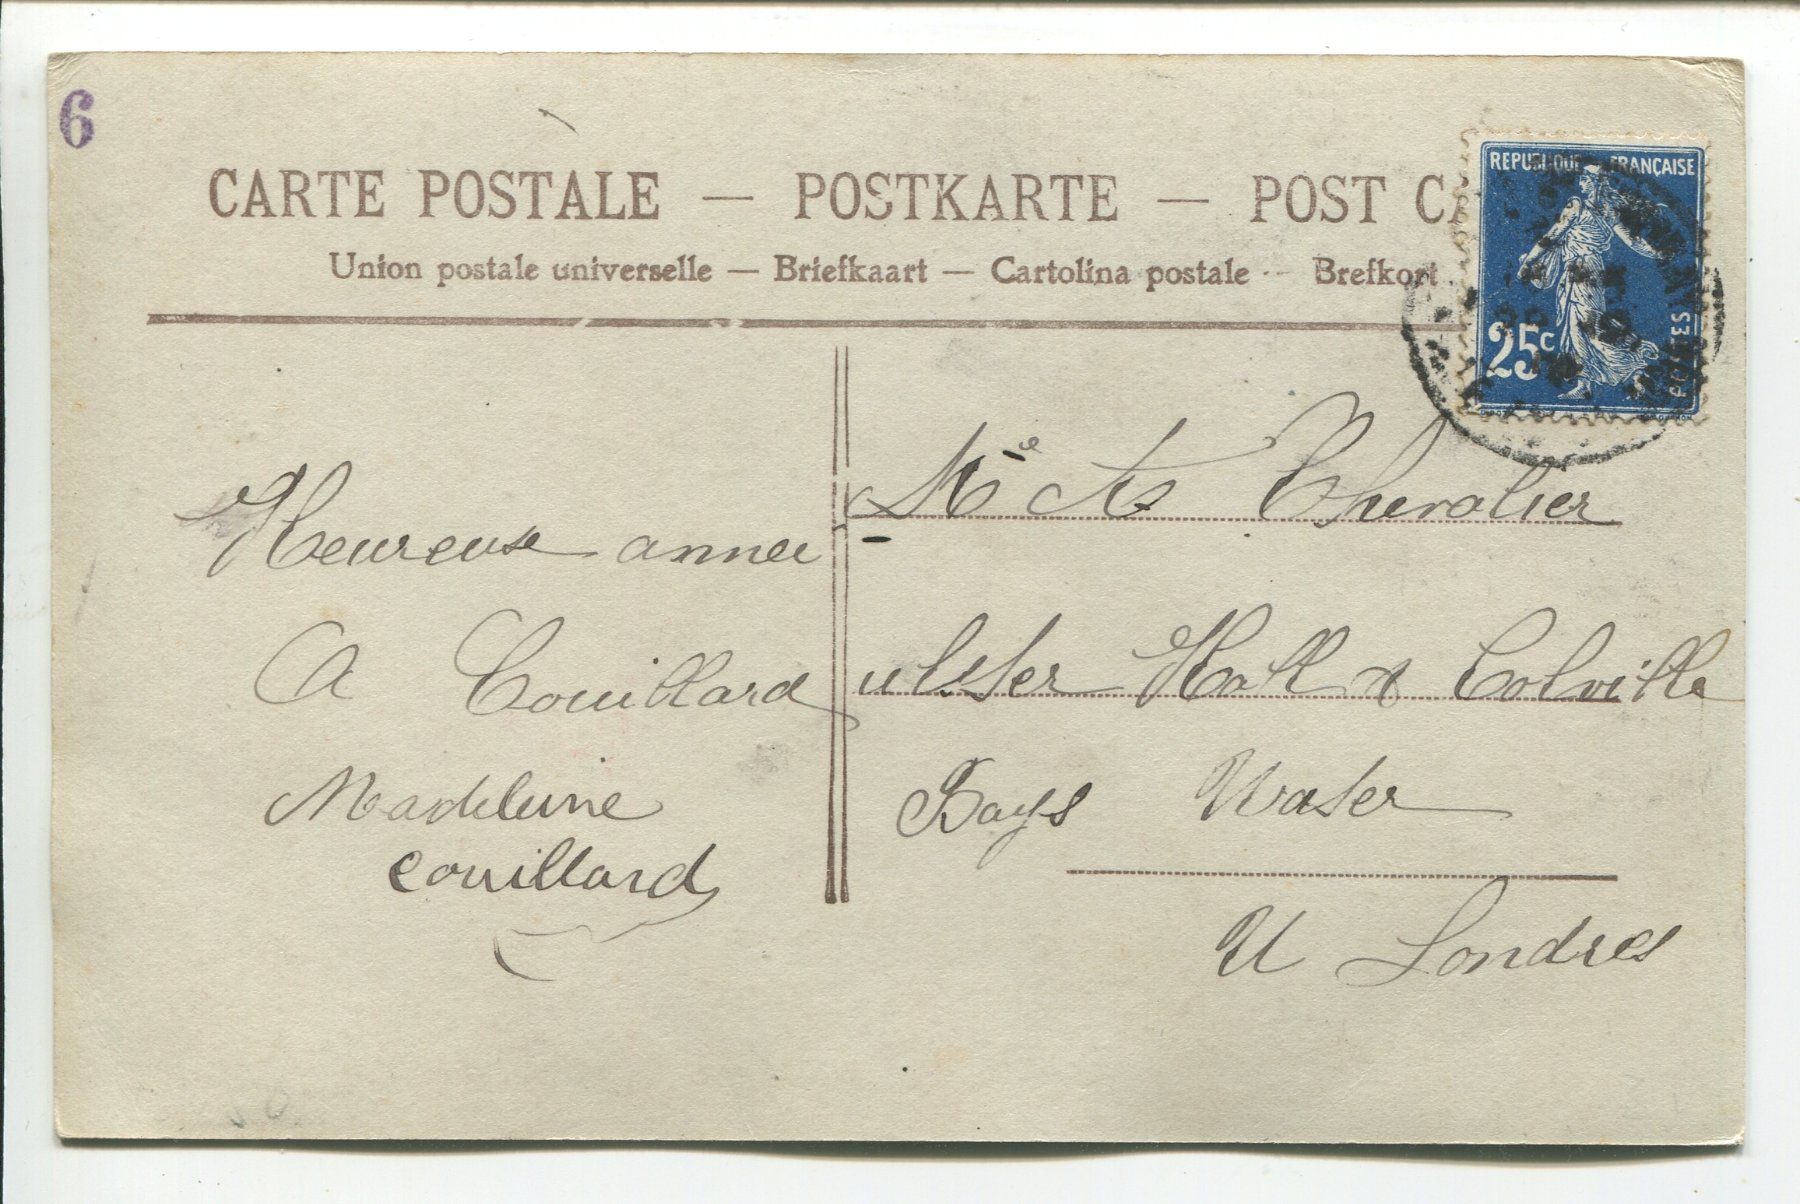 6
CARTE POSTALE — POSTKARTE — POST CA
Union postale universelle — Briefkaart — Cartolina postale — Brefkort
REPUBLIQUE FRANÇAISE
25c
POSTES
Heureuse année
A Couillard
Madeleine
Couillard
Chevalier
ulster Hall Colville
Bays Water
W Londres